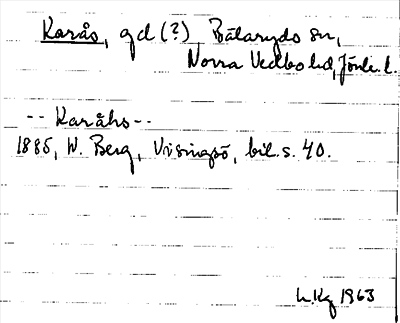 Karås, gd (?) Bälaryds sn,
Norra Vedbo hd, Jönk. l.
-- Karåhs --
1885, W. Berg, Visingsö, bil. s. 40.
1963